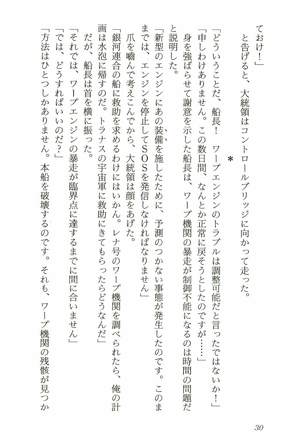 ておけ！」
と告げると、大統領はコントロールブリッジに向かって走った。
＊
「どういうことだ、船長！　ワープエンジンのトラブルは調整可能だと言ったではないか！」
「申しわけありません。この数日間、なんとか正常に戻そうとしたのですが……」
身を強ばらせて謝意を示した船長は、ワープ機関の暴走が制御不能になるのは時間の問題だ
と説明した。
「新型のエンジンにあの装備を施したために、予測のつかない事態が発生したのです。このま
までは、エンジンを停止してＳＯＳを発信しなければなりません」
爪を嚙んで考えこんでから、大統領は顔をあげた。
「銀河連合の船に救助を求めるわけにはいかん。レナ号のワープ機関を調べられたら、俺の計
画は水泡に帰すのだ。トラナスの宇宙軍に救助にきてもらったらどうなんだ」
だが、船長は首を横に振った。
「それでは、ワープエンジンの暴走が臨界点に達するまでに間に合いません」
「では、どうすればいいのだ？」
「方法はひとつしかありません。本船を破壊するのです。それも、ワープ機関の残骸が見つか
30